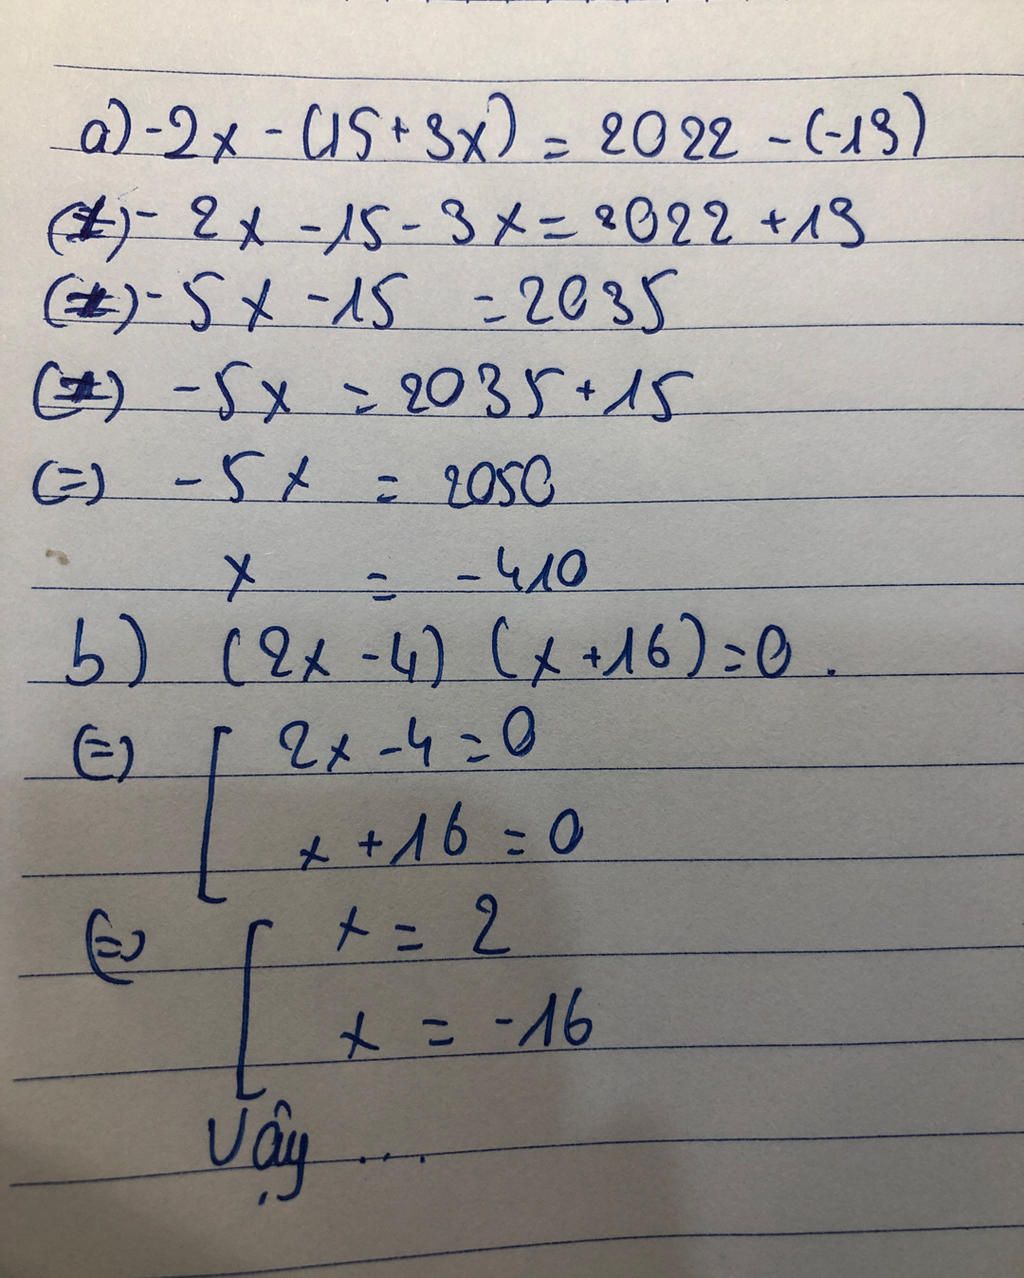 a) -2x - (15 + 3x) = 2022 - (-13)
(=) - 2x - 15 - 3x = 2022 + 13
(=) - 5x - 15 = 2035
(=) - 5x = 2035 + 15
(=) - 5x = 2050
x = -410
b) (2x - 4) (x + 16) = 0 .
(=) [ 2x - 4 = 0
x + 16 = 0
(=) [ x = 2
x = -16
Vậy ....